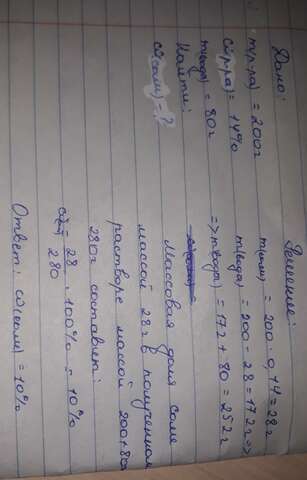 Дано:
m(р-ра) = 200г
ω(р-ра) = 14%
m(вода) = 80г
Найти:
ω(соли) = ?
Решение:
m(соли) = 200 · 0,14 = 28г
m(вода) = 200 - 28 = 172г =>
=> m(вода) = 172 + 80 = 252г
Массовая доля соли
массой 28г в полученном
растворе массой 200+80
280г составит:
ω = 28/280 · 100% = 10%
Ответ: ω(соли) = 10%